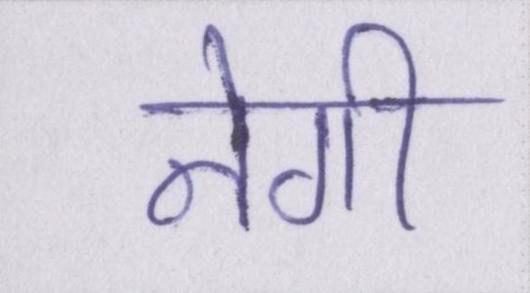 नेगी